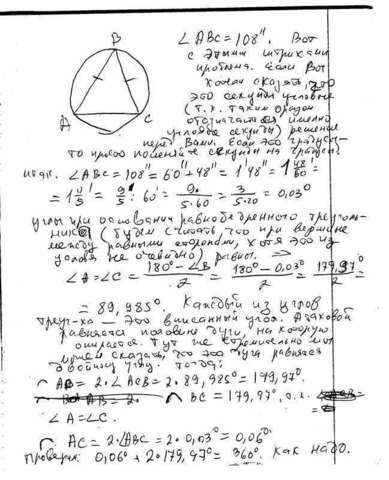 B
A
C
∠ABC=108". Вот
с этими штрихами
проблема. Если Вот
хотели сказать, что
это секунды угловые
(т.к. таким образом
обозначаются именно
угловые секунды) решение
перед Вами. Если это градусы-
то просто поменяйте секунды на градусы.
итак. ∠ABC=108"=60"+48"=1'48"=1 48/60 =
=1 4/5' = 9/5' : 60' = 9/5·60 = 3/5·20 = 0,03°
углы при основании равнобедренного треуголь-
ника (будем считать, что при вершине
между равными сторонами, хотя это из
условия не очевидно) равны. ⇒
∠A=∠C = 180°-∠B/2 = 180°-0,03°/2 = 179,97°/2 =
= 89,985°. Каждый из углов
треуг-ка — это вписанный угол. А таковой
равняется половине дуги на которую
опирается. Тут же
сказать, что эта дуга равняется
двойному углу. Тогда:
⌒ AB = 2·∠ACB = 2·89,985° = 179,97°
⌒ BC = 179,97°, т.к.
∠A=∠C.
⌒ AC = 2·∠ABC = 2·0,03° = 0,06°
Проверка: 0,06° + 2·179,97° = 360°. Как надо.